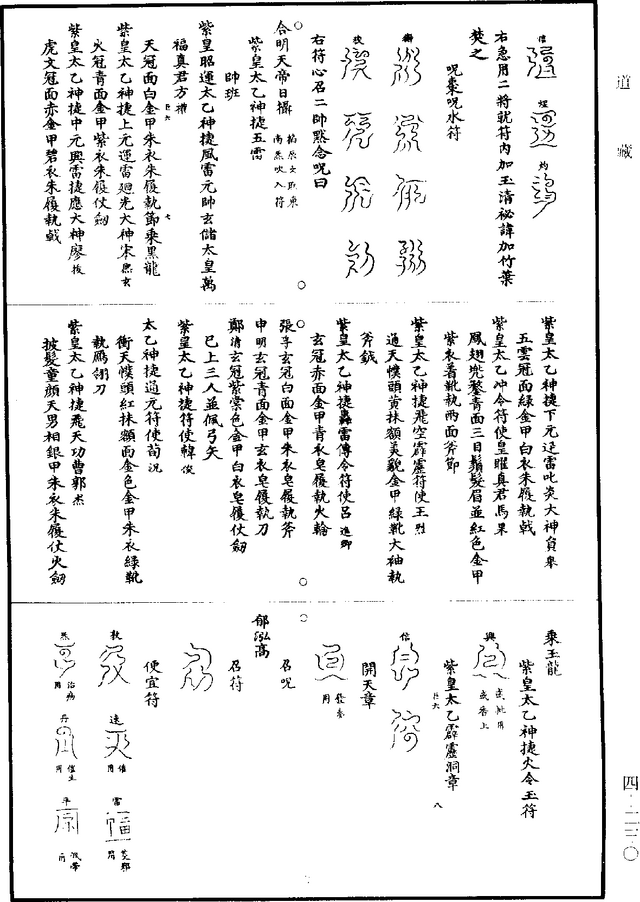 道藏
信
煋
灼
右急用二將就符內加玉清祕諱加竹葉
焚之
呪棗呪水符
右符心召二帥默念呪曰
合明天帝日
紫皇太乙神捷五雷
帥班
紫皇昭運太乙神捷風雷元帥玄儲太皇萬
福真君方
天冠面白金甲朱衣朱履執節乘黑龍
紫皇太乙神捷上元運雷廻光大神宋
火冠青面金甲紫衣朱履仗劒
紫皇太乙神捷中元興雷捷應大神廖
虎文冠面赤金甲碧衣朱履執戟
紫皇太乙神捷下元廷雷叱炎大神負
五雲冠面綠金甲白衣朱履執戟
紫皇太乙沖令符使皇躍真君馬果
鳳翅兜鍪青面三目鬚髮眉並紅色金甲
紫衣著靴執兩面斧節
紫皇太乙神捷飛空霹靂符使王烈
通天幞頭黃抹額美貌金甲綠靴大袖執
斧鉞
紫皇太乙神捷轟雷傳令符使呂進卿
玄冠赤面金甲青衣皂履執火輪
張玄冠白面金甲朱衣皂履執斧
申明玄冠青面金甲玄衣皂履執刀
鄭清玄冠紫棠色金甲白衣皂履仗劒
已上三人並佩弓矢
紫皇太乙神捷符使韓俊
太乙神捷通元符使荀況
衝天幞頭紅抹額面金色金甲朱衣綠靴
執鴈翎刀
紫皇太乙神捷飛天功曹郭杰
披髮童顏天男相銀甲朱衣朱履仗火劒
乘玉龍
紫皇太乙神捷火令玉符
興
紫皇太乙霹靂洞章
八
信
開天章
發奏用
召呪
郁泓高
召符
便宜符
救
速
催用
雷
芟邪用
炁
治病用
丹
催生用
平
四·二三〇